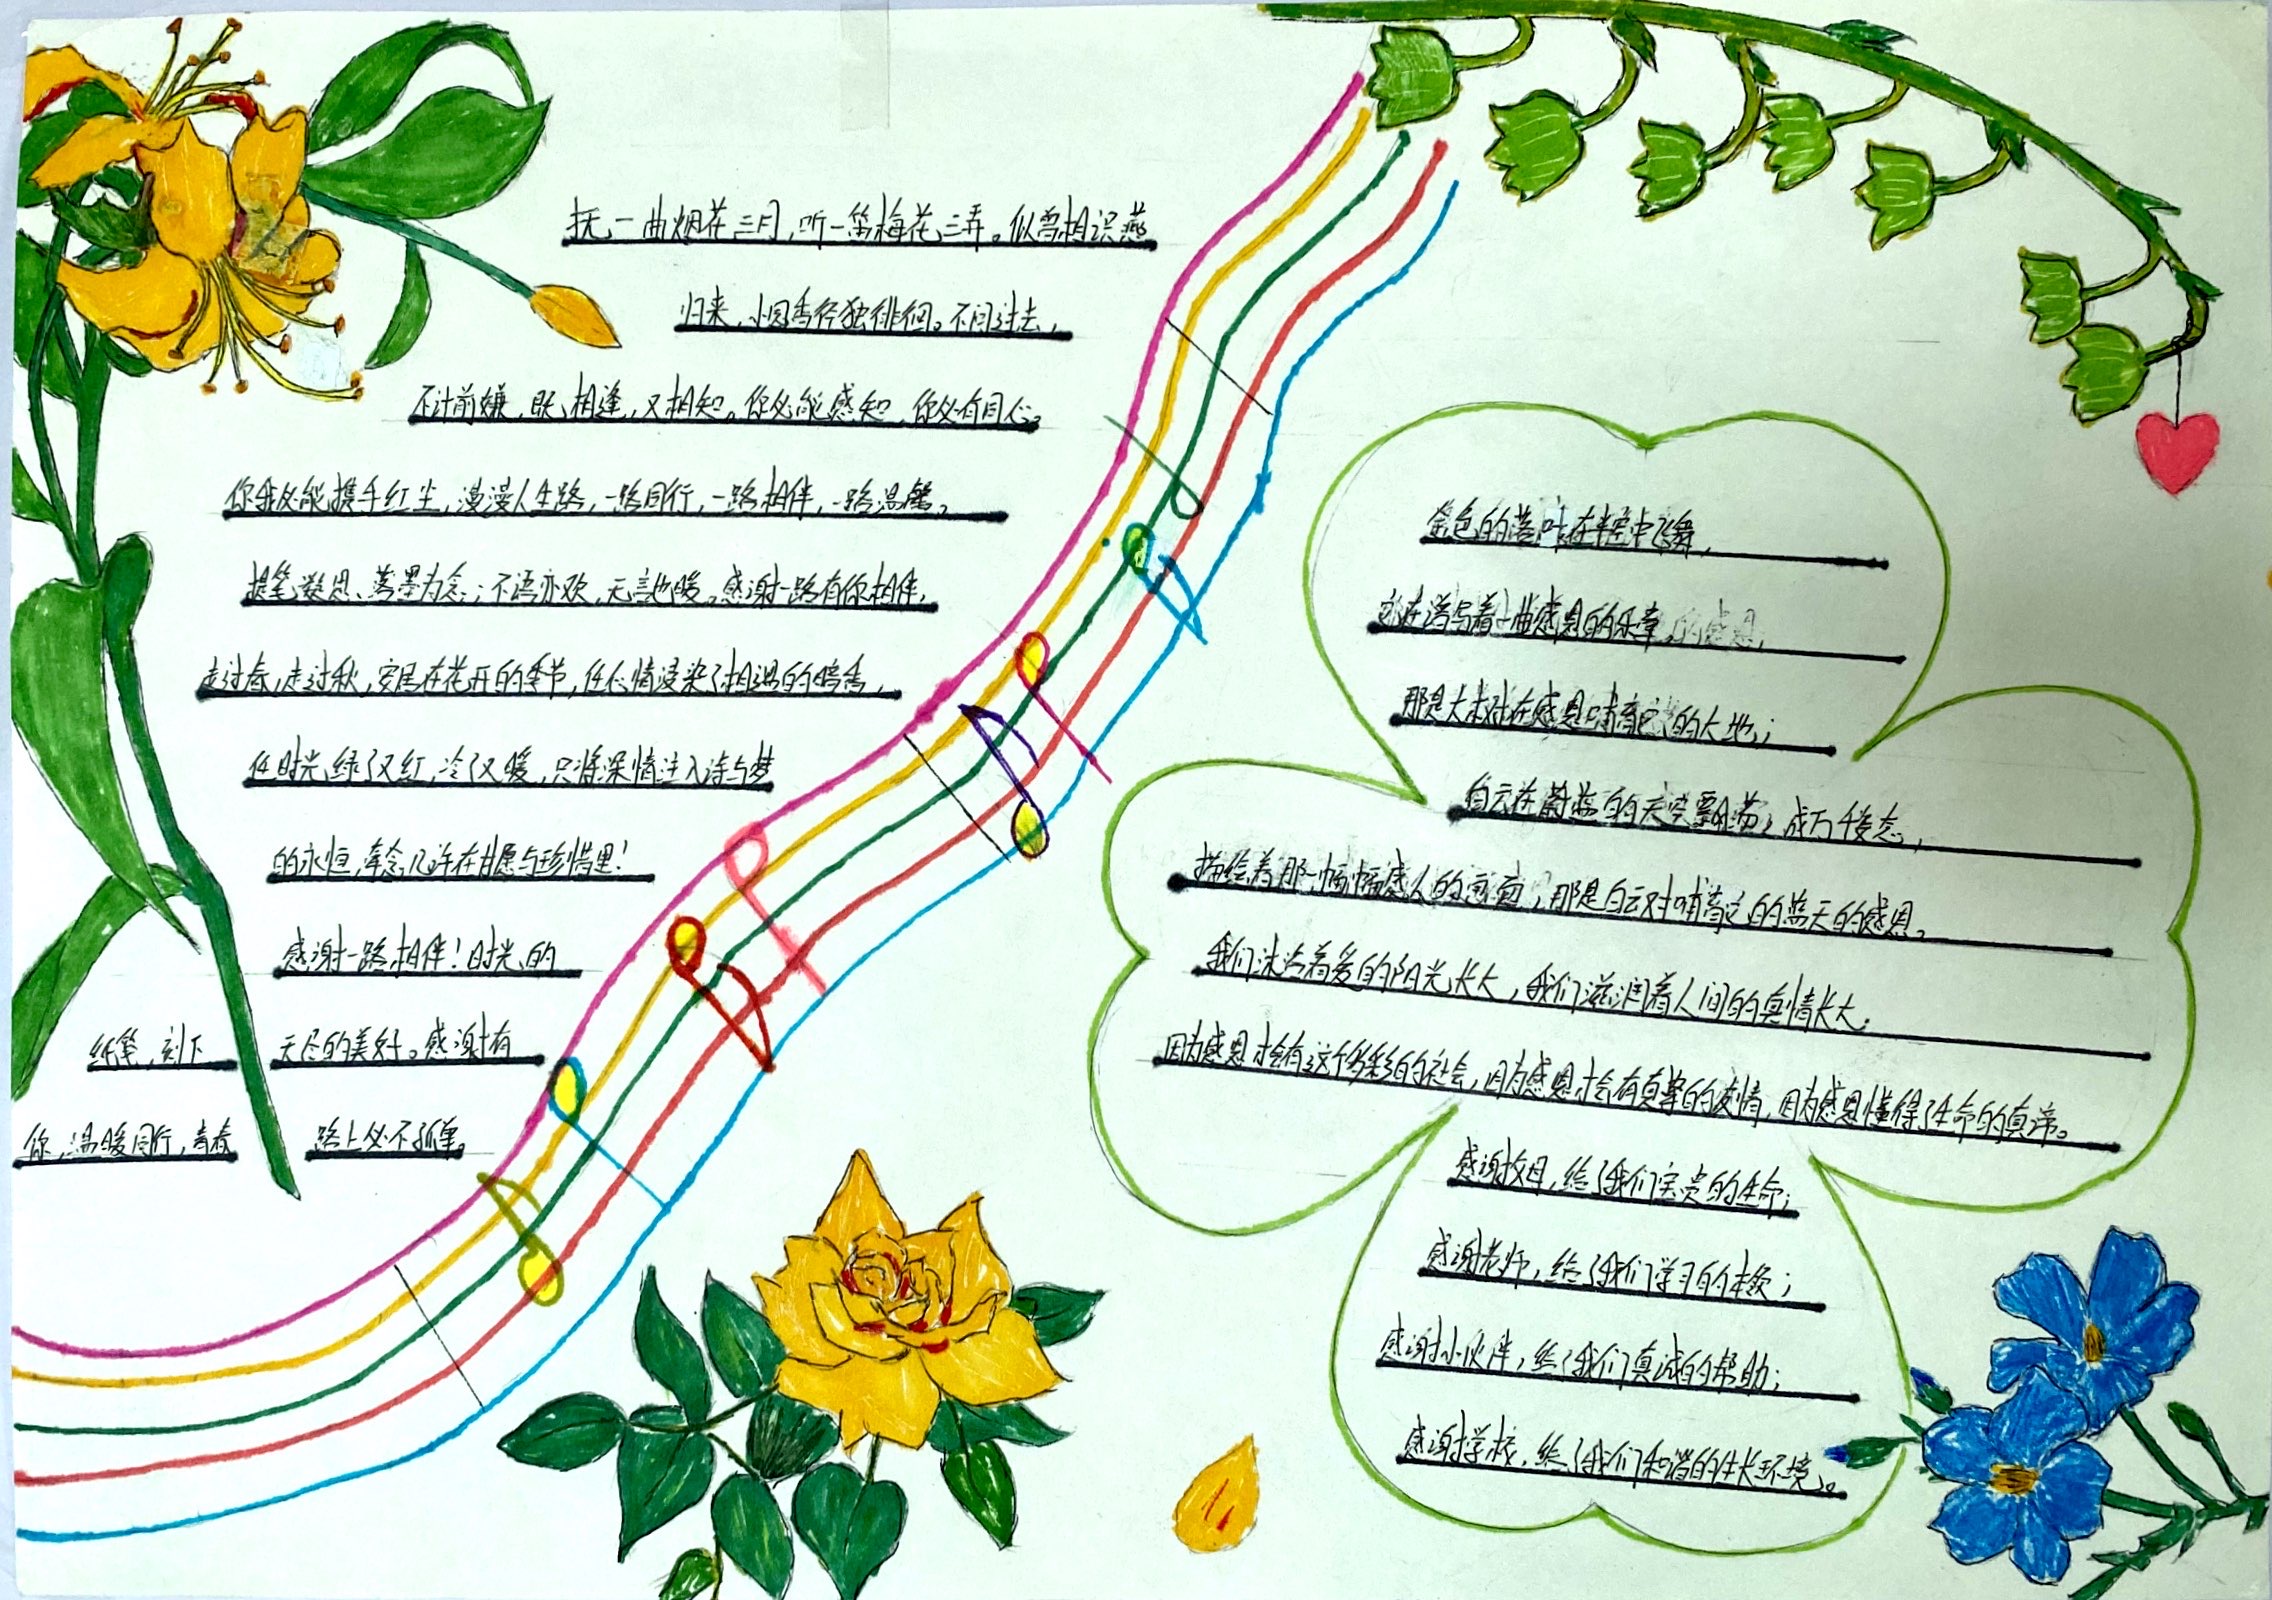 抚一曲烟花三月，听一笛梅花三弄。似曾相识燕
归来，小园香径独徘徊。不问过去，
不计前嫌，既相逢，又相知。你必能感知，你必有同心。
你我必能携手红尘，漫漫人生路，一路同行，一路相伴，一路温馨。
提笔数思、落墨为念；不语亦欢，无言也暖。感谢一路有你相伴，
走过春，走过秋，安居在花开的季节，任心情浸染了相遇的暗香，
任时光绿了又红，冷了又暖，只将深情注入诗与梦
的永恒，牵念几许在甘愿与珍惜里！
感谢一路相伴！时光的
纸笔，刻下 无尽的美好。感谢有
你，温暖同行，青春 路上必不孤单。
金色的落叶在半空中飞舞，
它在谱写着一曲感恩的乐章，的感恩，
那是大树在感恩哺育它的大地；
白云在蔚蓝的天空飘荡，成万千姿态，
描绘着那一幅幅感人的画面，那是白云对哺育它的蓝天的感恩。
我们沐浴着爱的阳光长大，我们滋润着人间的真情长大。
因为感恩才会有这个多彩的社会，因为感恩才会有真挚的友情，因为感恩懂得了生命的真谛。
感谢父母，给了我们宝贵的生命；
感谢老师，给了我们学习的本领；
感谢小伙伴，给了我们真诚的帮助；
感谢学校，给了我们和谐的生长环境。